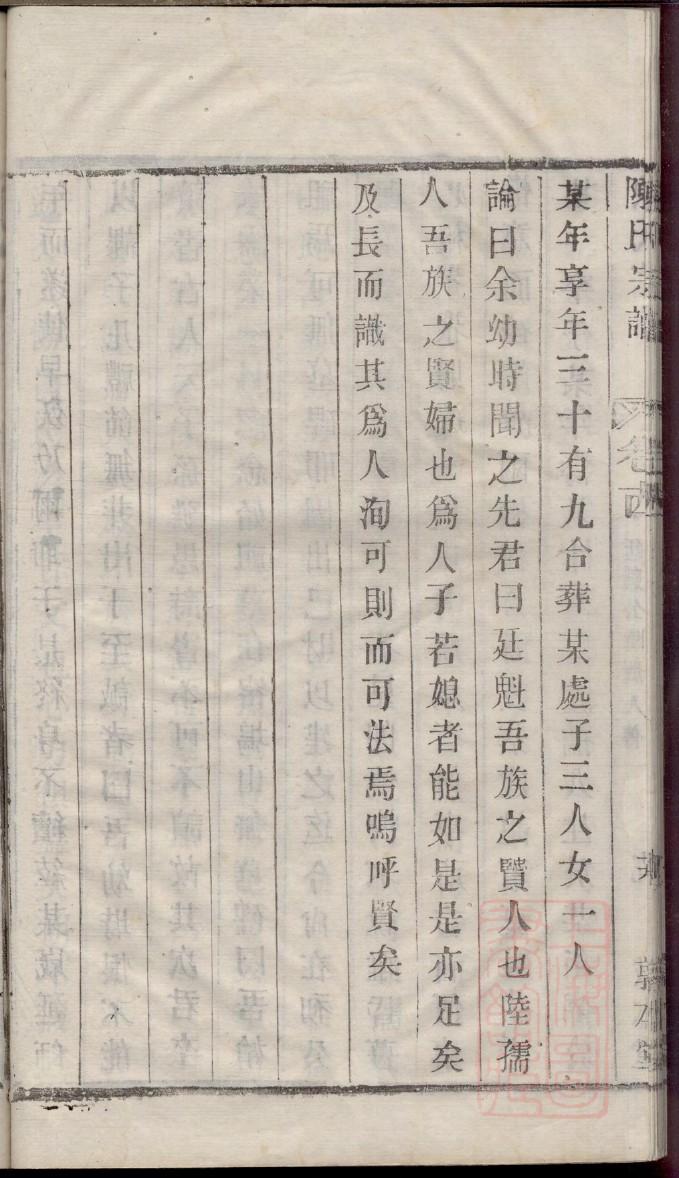 陳氏宗譜 卷
某年享年三十有九合葬某處子三人女一人
論曰余幼時聞之先君曰廷魁吾族之賢人也陸孺
人吾族之賢婦也為人子若媳者能如是是亦足矣
及長而識其為人洵可則而可法焉嗚呼賢矣